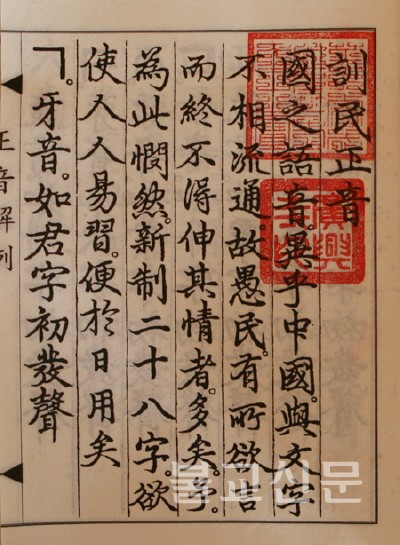 訓民正音
國之語音。異乎中國。與文字
不相流通。故愚民。有所欲言
而終不得伸其情者。多矣。予。
為此憫然。新制二十八字。欲
使人人易習。便於日用矣
ㄱ。牙音。如君字初發聲
正音解例
불교신문